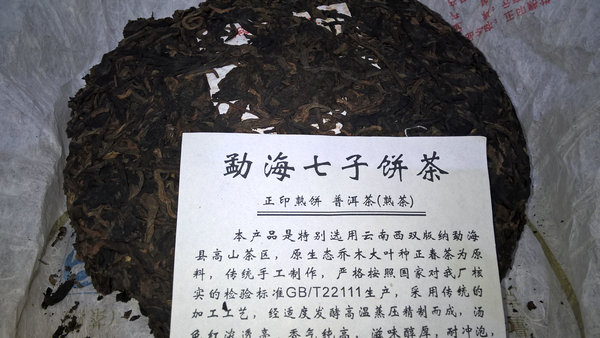 勐海七子饼茶
正印熟饼 普洱茶(熟茶)
本产品是特别选用云南西双版纳勐海
县高山茶区，原生态乔木大叶种正春茶为原
料，传统手工制作，严格按照国家对我厂核
实的检验标准GB/T22111生产，采用传统的
加工工艺，经适度发酵高温蒸压精制而成，汤
色红浓透亮，香气纯高，滋味醇厚，耐冲泡，